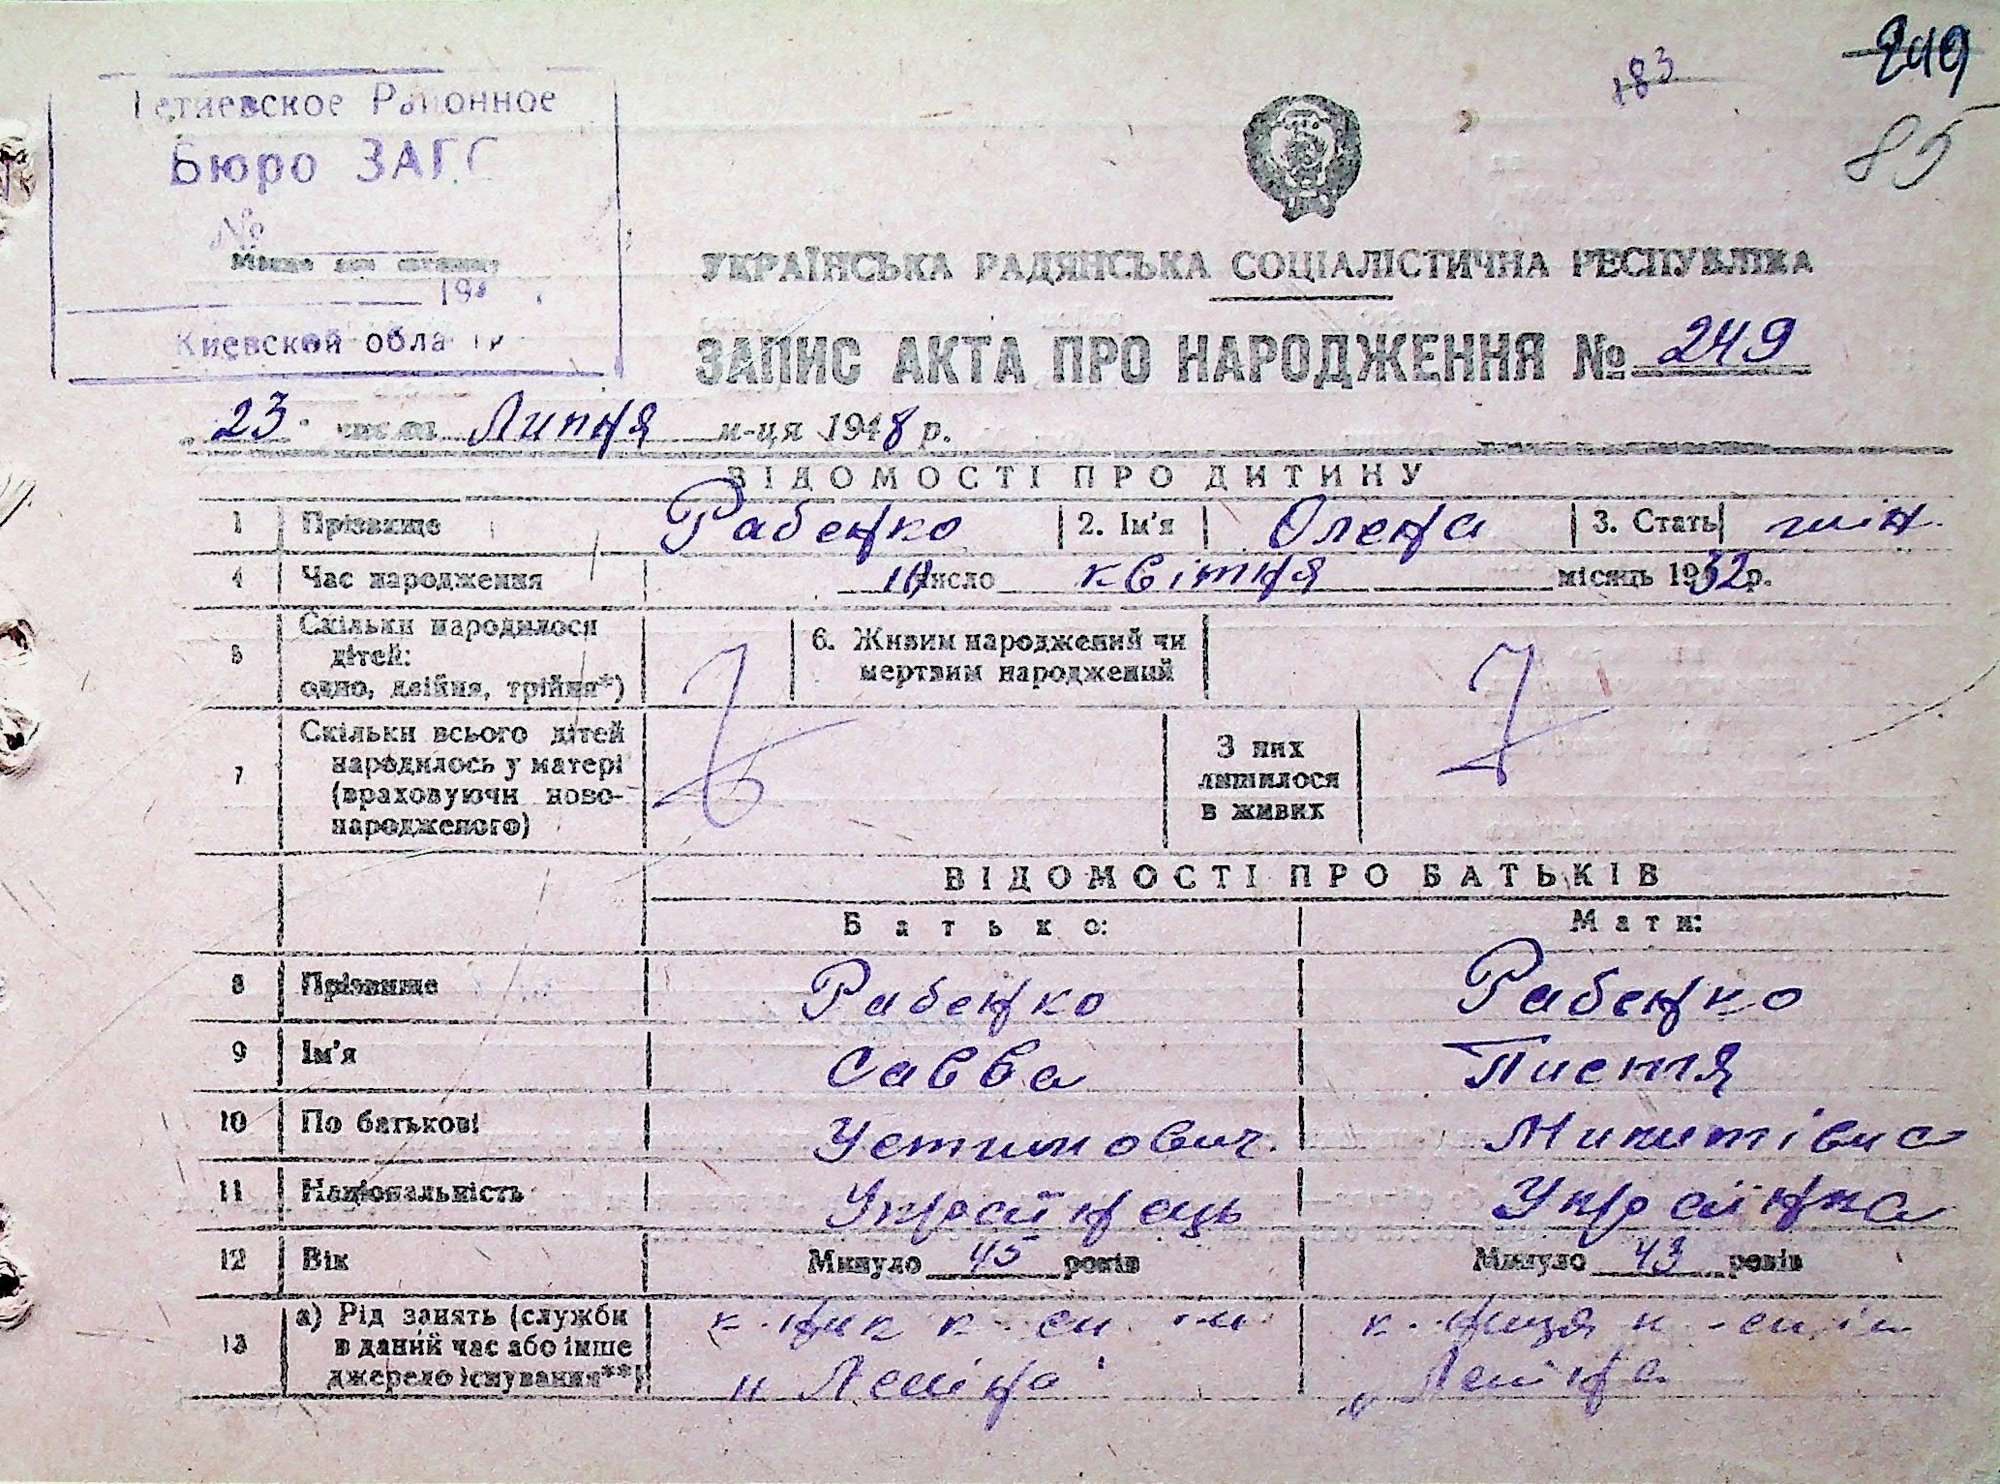 249
183
85
Тетиевское Районное
Бюро ЗАГС
№
194
Киевской области
УКРАЇНСЬКА РАДЯНСЬКА СОЦІАЛІСТИЧНА РЕСПУБЛІКА
ЗАПИС АКТА ПРО НАРОДЖЕННЯ № 249
„23" числа Липня м-ця 1948 р.
ВІДОМОСТІ ПРО ДИТИНУ
1 Прізвище Рабенко 2. Ім'я Олена 3. Стать жін.
4 Час народження число квітня місяць 1932 р.
5 Скільки народилося дітей: одно, двійня, трійня*)
6. Живим народжений чи мертвим народжений
7 Скільки всього дітей народилось у матері (враховуючи новонародженого)
З них лишилося в живих
ВІДОМОСТІ ПРО БАТЬКІВ
Батько: Мати:
8 Прізвище Рабенко Рабенко
9 Ім'я Савва Пистя
10 По батькові Устимович. Микитівна
11 Національність Українець Українка
12 Вік Минуло 45 років Минуло 43 років
13 а) Рід занять (служби в даний час або інше джерело існування**) к-ник к-сп ім к-ниця к-сп ім
„ Леніна „ Леніна